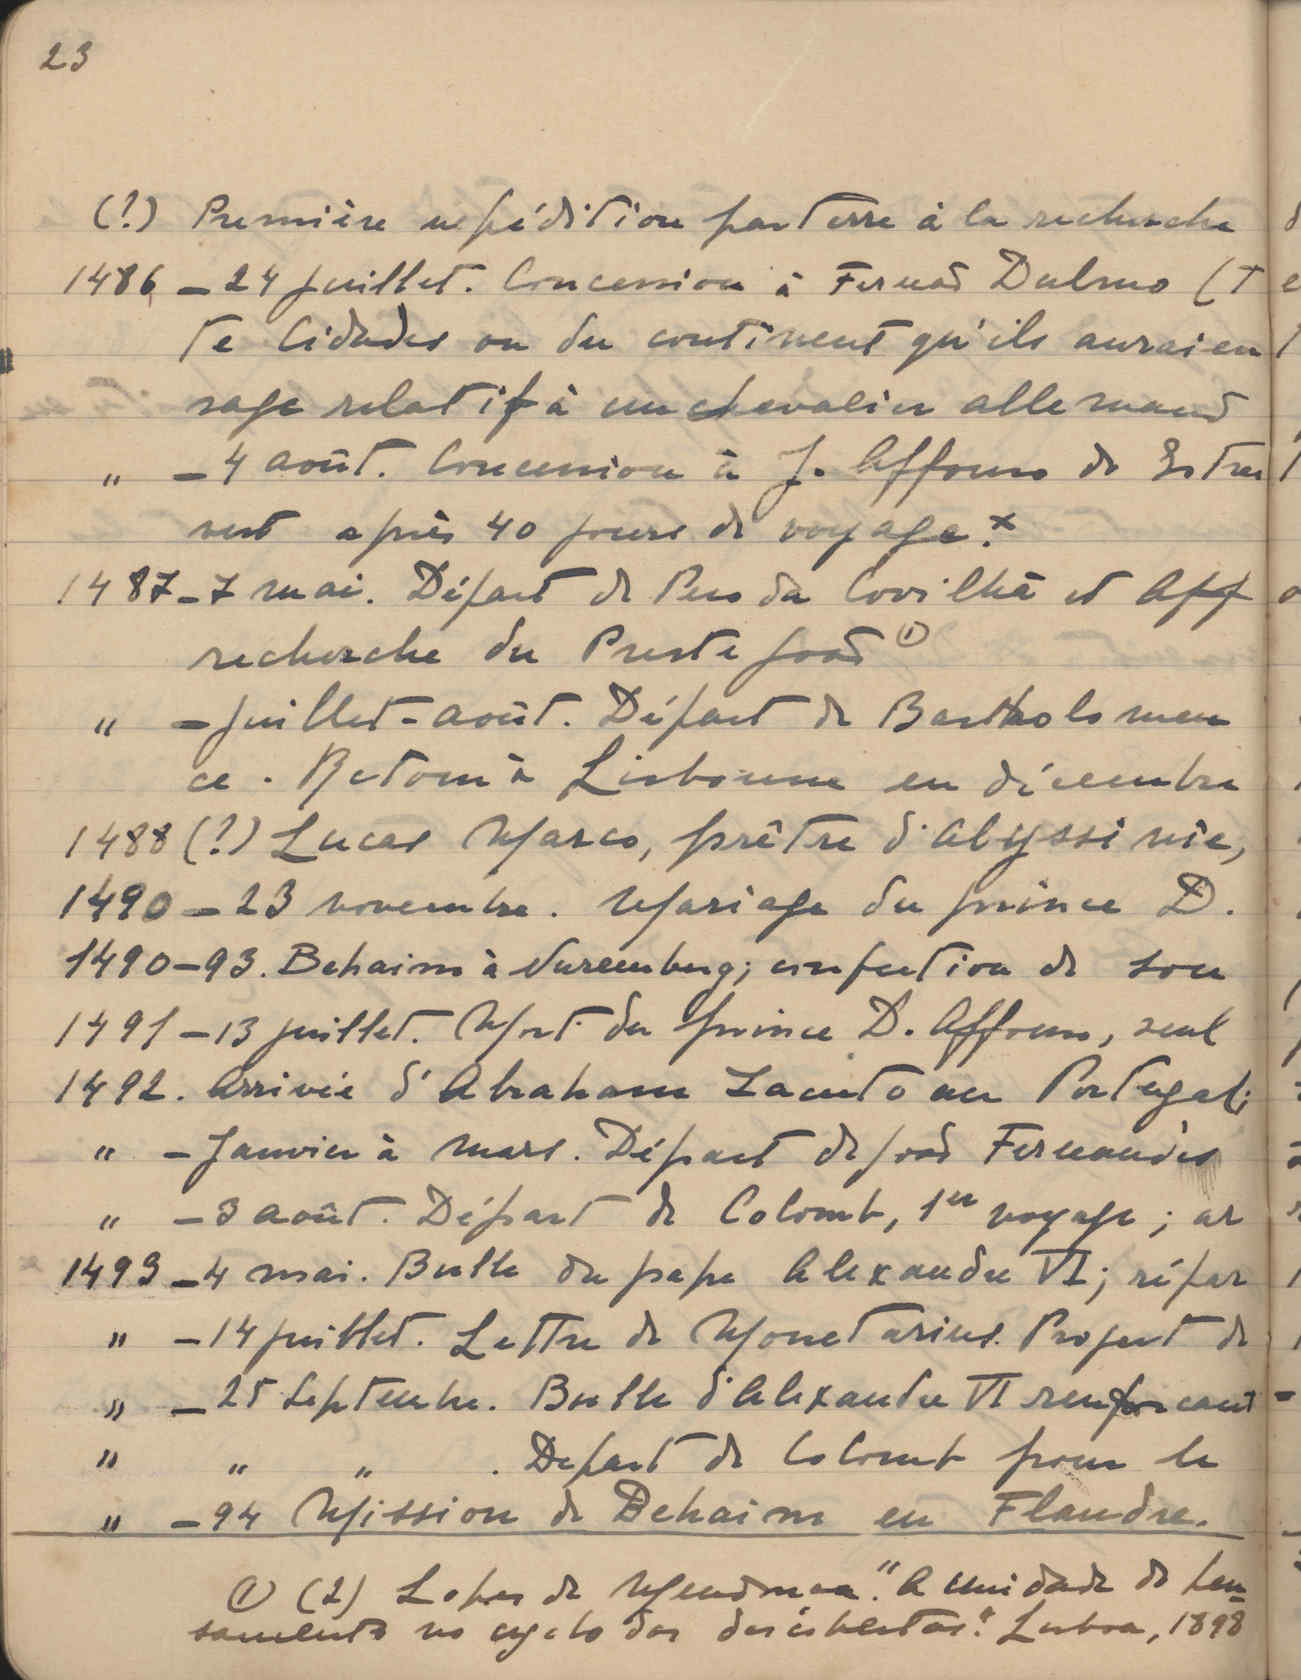 23
(?) Première expédition par terre à la recherche
1486 – 24 juillet. Concession à Fernão Dulmo (T
te Cidades ou du continent qu'ils auraien
sage relatif à un chevalier allemand
" – 4 août. Concession à J. Affonso de Estrei
vert après 40 jours de voyage. x
1487 – 7 mai. Départ de Pero da Covilhã et Aff
recherche du Preste João ①
" – juillet - août. Départ de Bartholomeu
ce. Retour à Lisbonne en décembre
1488 (?) Lucas Marco, prêtre d'Abyssinie,
1490 – 23 novembre. Mariage du prince D.
1490 – 93. Behaim à Nuremberg; confection de son
1491 – 13 juillet. Mort du prince D. Affonso, seul
1492. Arrivée d'Abraham Zacuto au Portugal;
" – Janvier à mars. Départ de João Fernandes
" – 3 août. Départ de Colomb, 1er voyage; ar
1493 – 4 mai. Bulle du pape Alexandre VI; répar
" – 14 juillet. Lettre de Monetarius. Project de
" – 25 Septembre. Bulle d'Alexandre VI renforcant
" " " . Depart de Colomb pour le
" – 94 Mission de Behaim en Flandre.
① (2) Lopes de Mendonca. "A unidade do pen-
samento no cyclo das descobertas". Lisboa, 1898